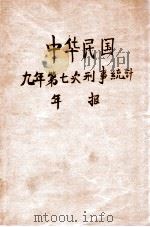 中华民国
九年第七次刑事統計
年 报
www.toutu.com